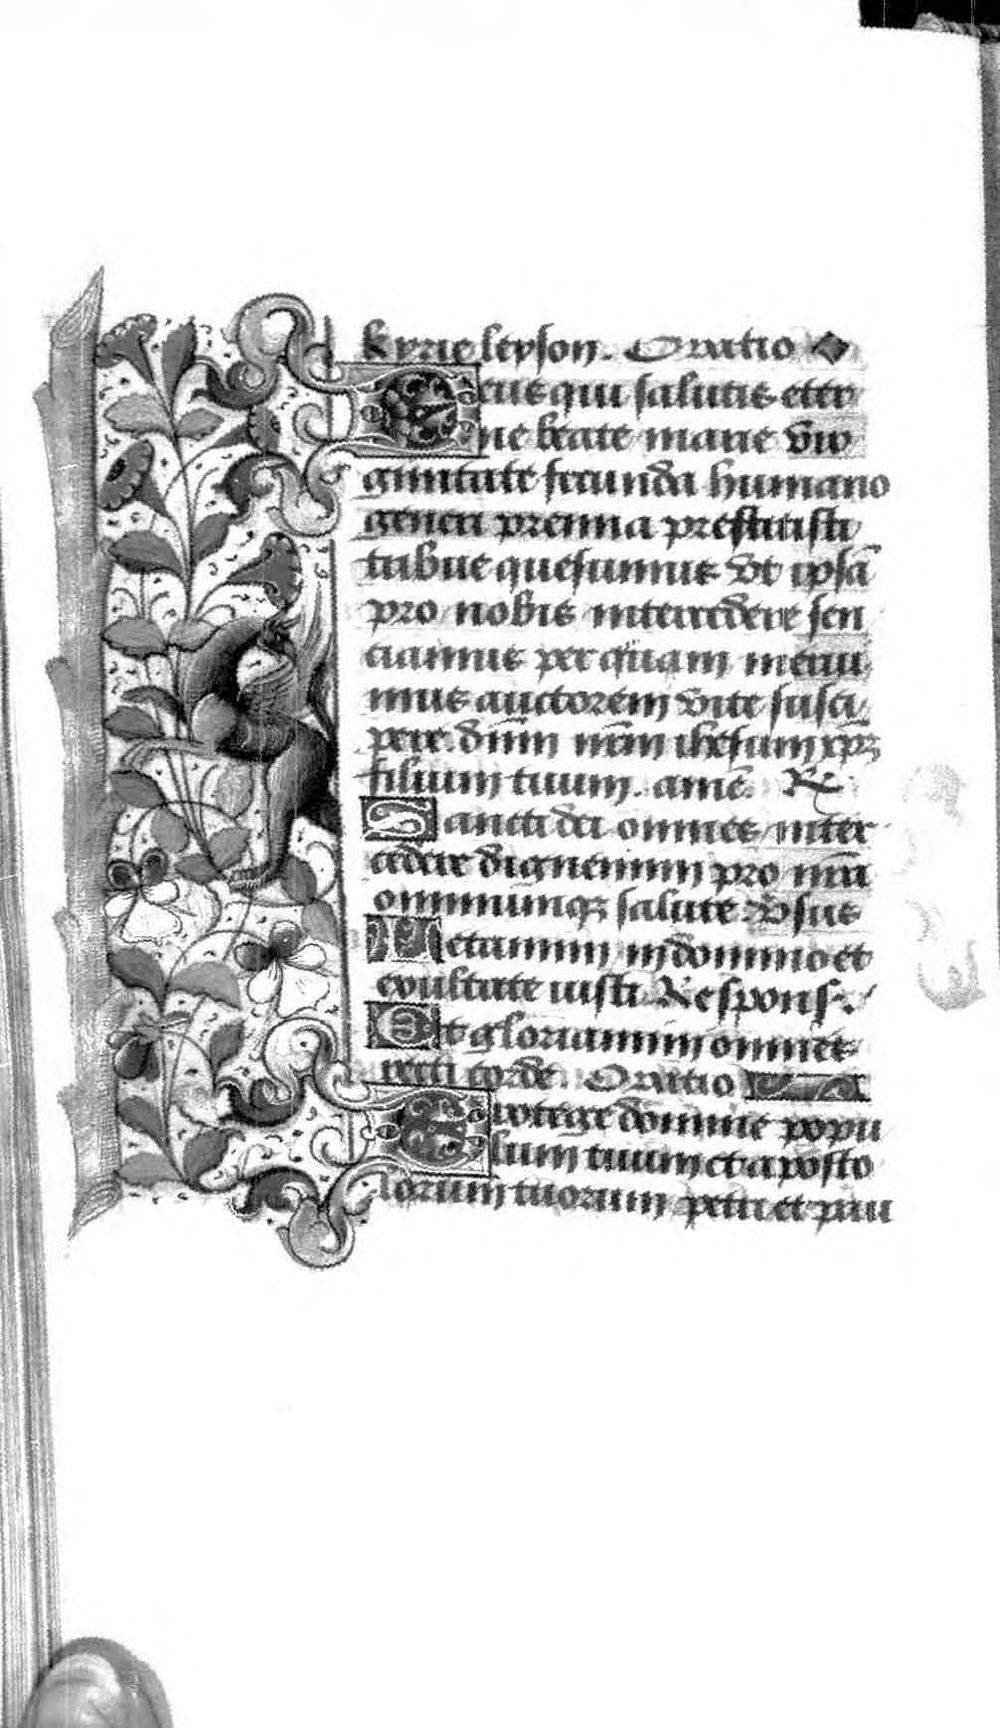 kyrie leyson. Oratio
Deus qui salutis eter
ne beate marie vir
ginitate fecunda humano
generi premia prestitisti
tribue quesumus vt ipsā
pro nobis intercedere sen
ciamus per quam merui
mus auctorem vite susci
pere. dñm nr̃m ihesum xp̃ꝫ
filium tuum. amē. ℟
Sancti dei omnes inter
cedere dignemini pro nr̃a
omniumqꝫ salute Vsus
Letamini in domino et
exultate iusti Respons.
Et gloriamini omnes
recti corde. Oratio
Protege domine popu
lum tuum et aposto
lorum tuorum petri et pau